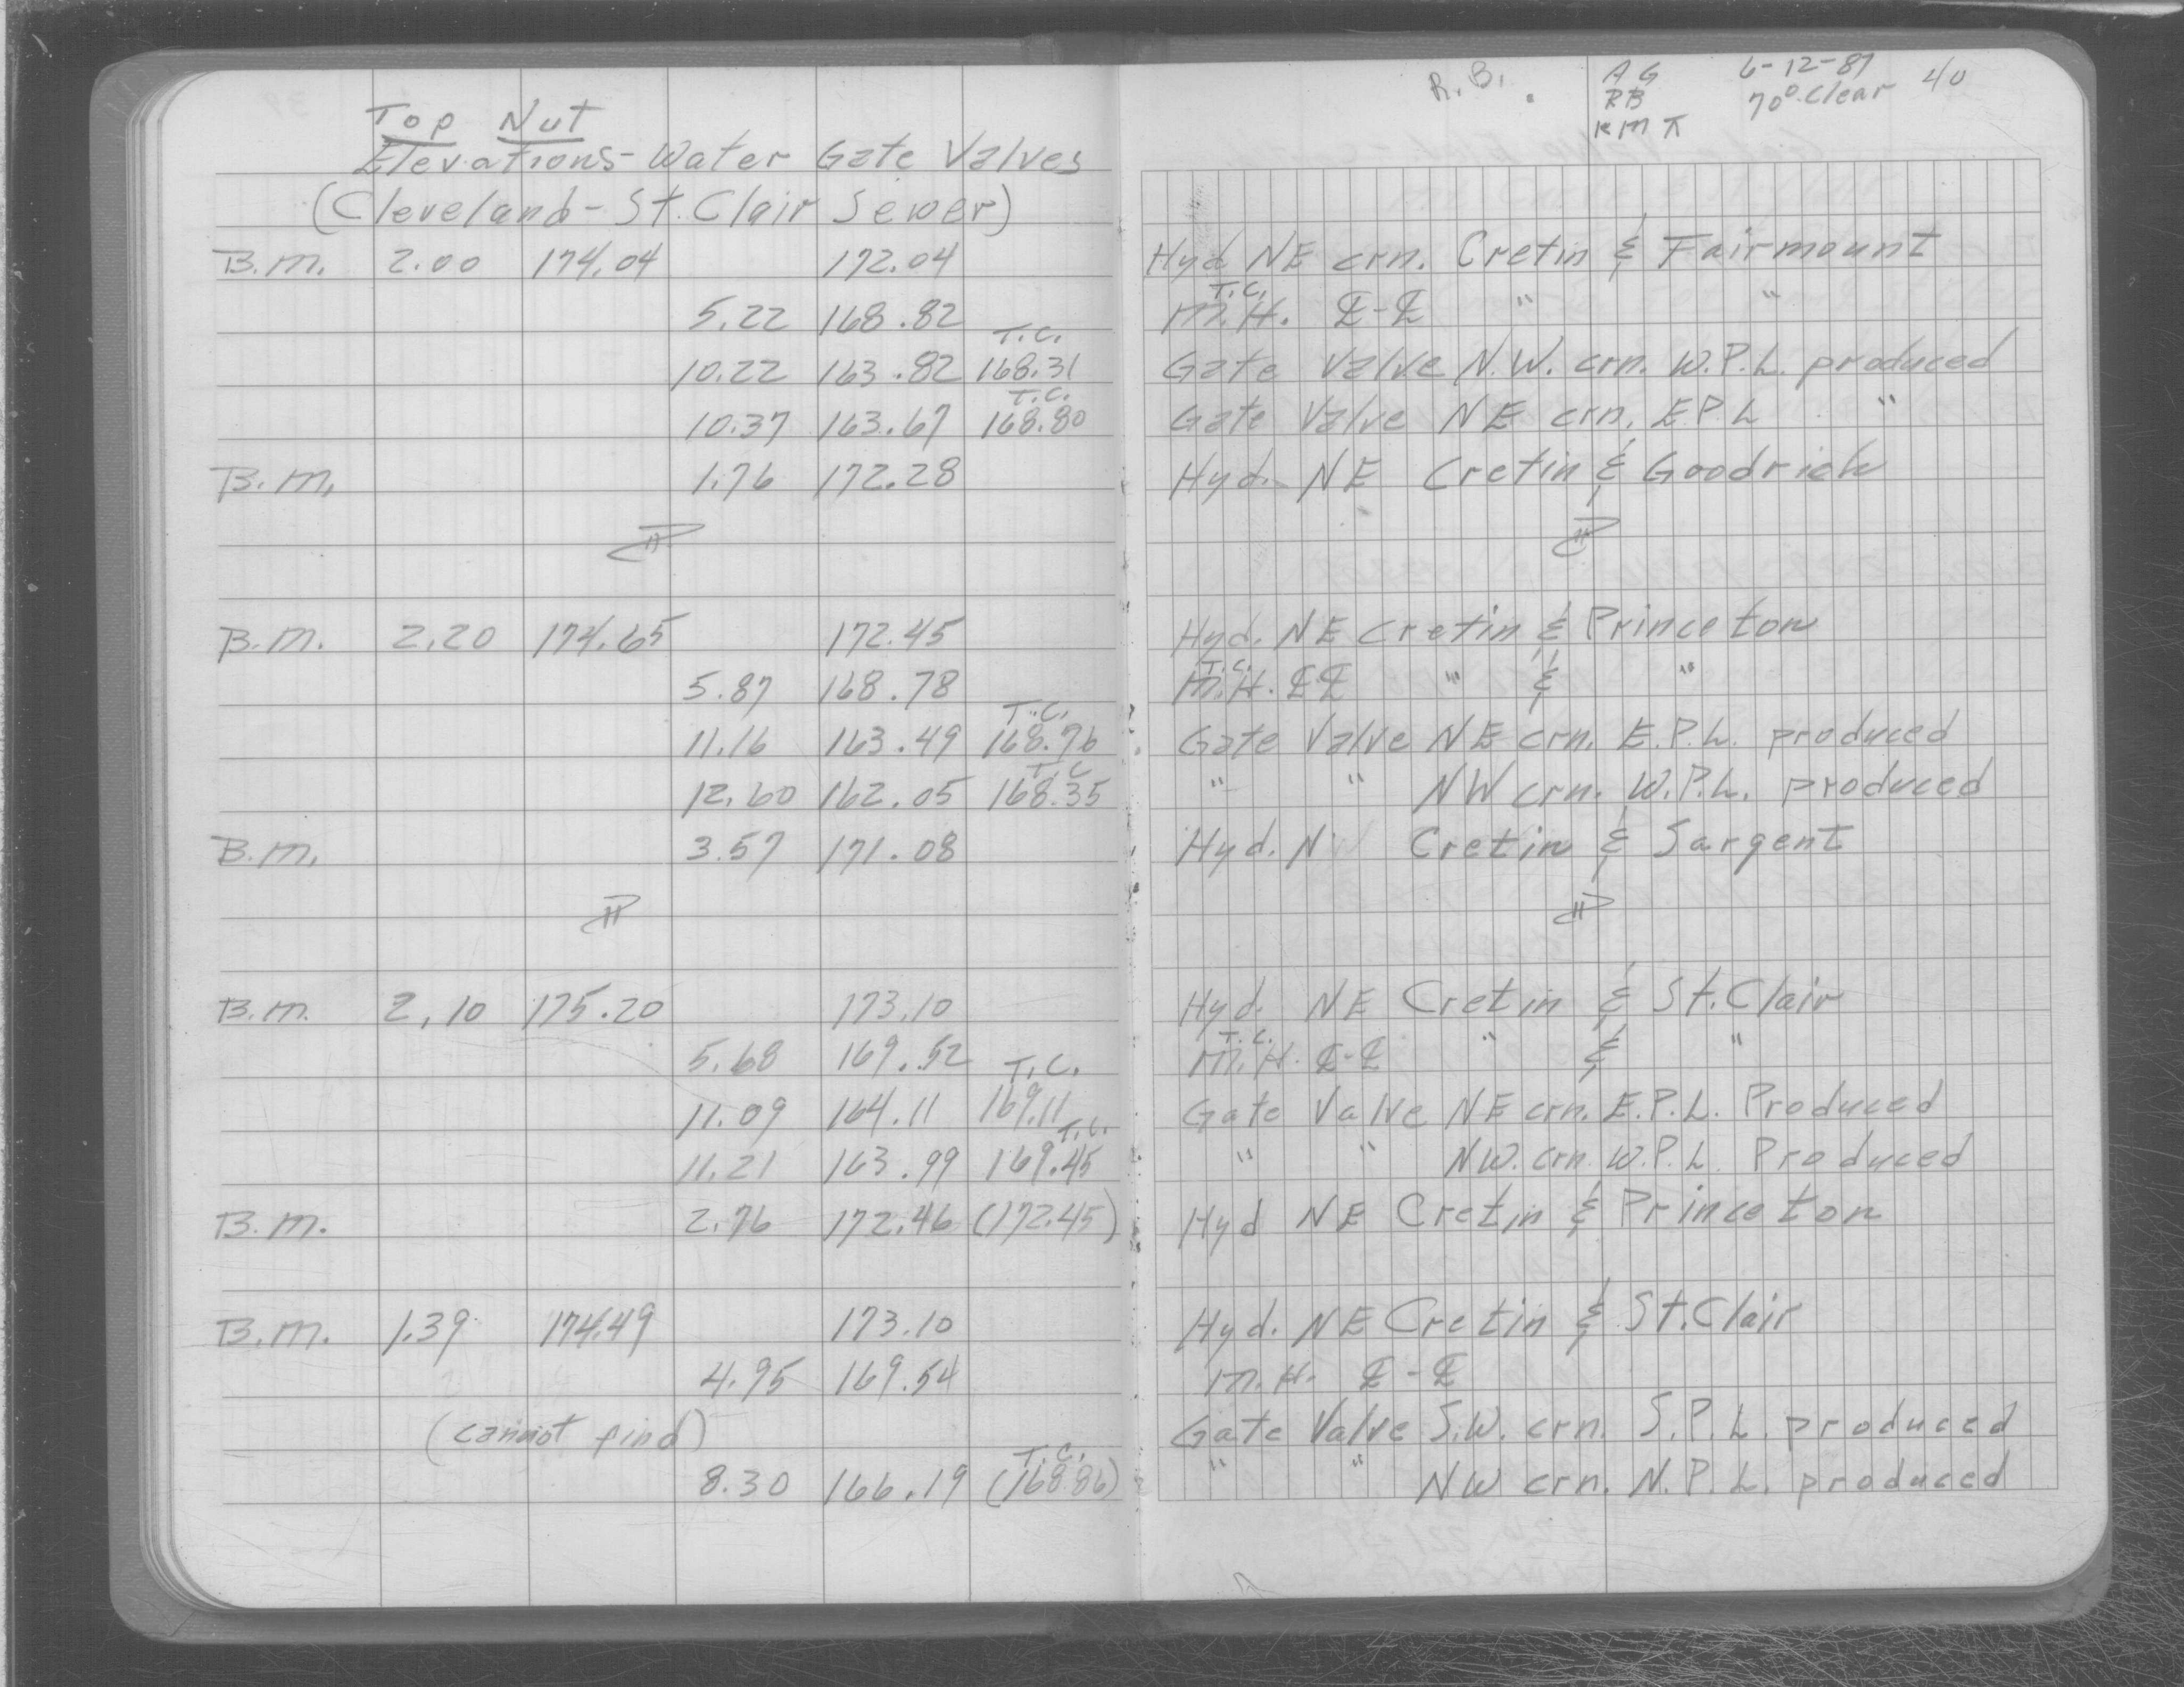 R.B. AG 6-12-87 40
RB 70° Clear
KMK
Top Nut
Elevations - Water Gate Valves
(Cleveland - St. Clair Sewer)
B.M. 2.00 174.04 172.04 Hyd NE crn. Cretin & Fairmount
T.C.
5.22 168.82 M.H. ℄-℄ " "
T.C.
10.22 163.82 168.31 Gate Valve N.W. crn. W.P.L. produced
T.C.
10.37 163.67 168.80 Gate Valve NE crn. E.P.L "
B.M. 1.76 172.28 Hyd. NE Cretin & Goodrich
B.M. 2.20 174.65 172.45 Hyd. NE Cretin & Princeton
T.C.
5.87 168.78 M.H. ℄ ℄ " & "
T.C.
11.16 163.49 168.76 Gate Valve NE crn. E.P.L. produced
T.C
12.60 162.05 168.35 " " NW crn. W.P.L. produced
B.M. 3.57 171.08 Hyd. N Cretin & Sargent
B.M. 2.10 175.20 173.10 Hyd. NE Cretin & St. Clair
T.C.
5.68 169.52 M.H. ℄-℄ " & "
T.C.
11.09 164.11 169.11 Gate Valve NE crn. E.P.L. Produced
T.C.
11.21 163.99 169.45 " " NW. crn. W.P.L. Produced
B.M. 2.76 172.46 (172.45) Hyd NE Cretin & Princeton
B.M. 1.39 174.49 173.10 Hyd. NE Cretin & St. Clair
4.95 169.54 M.H. ℄-℄
(cannot find) Gate Valve S.W. crn. S.P.L. produced
T.C.
8.30 166.19 (168.86) " " NW crn. N.P.L. produced